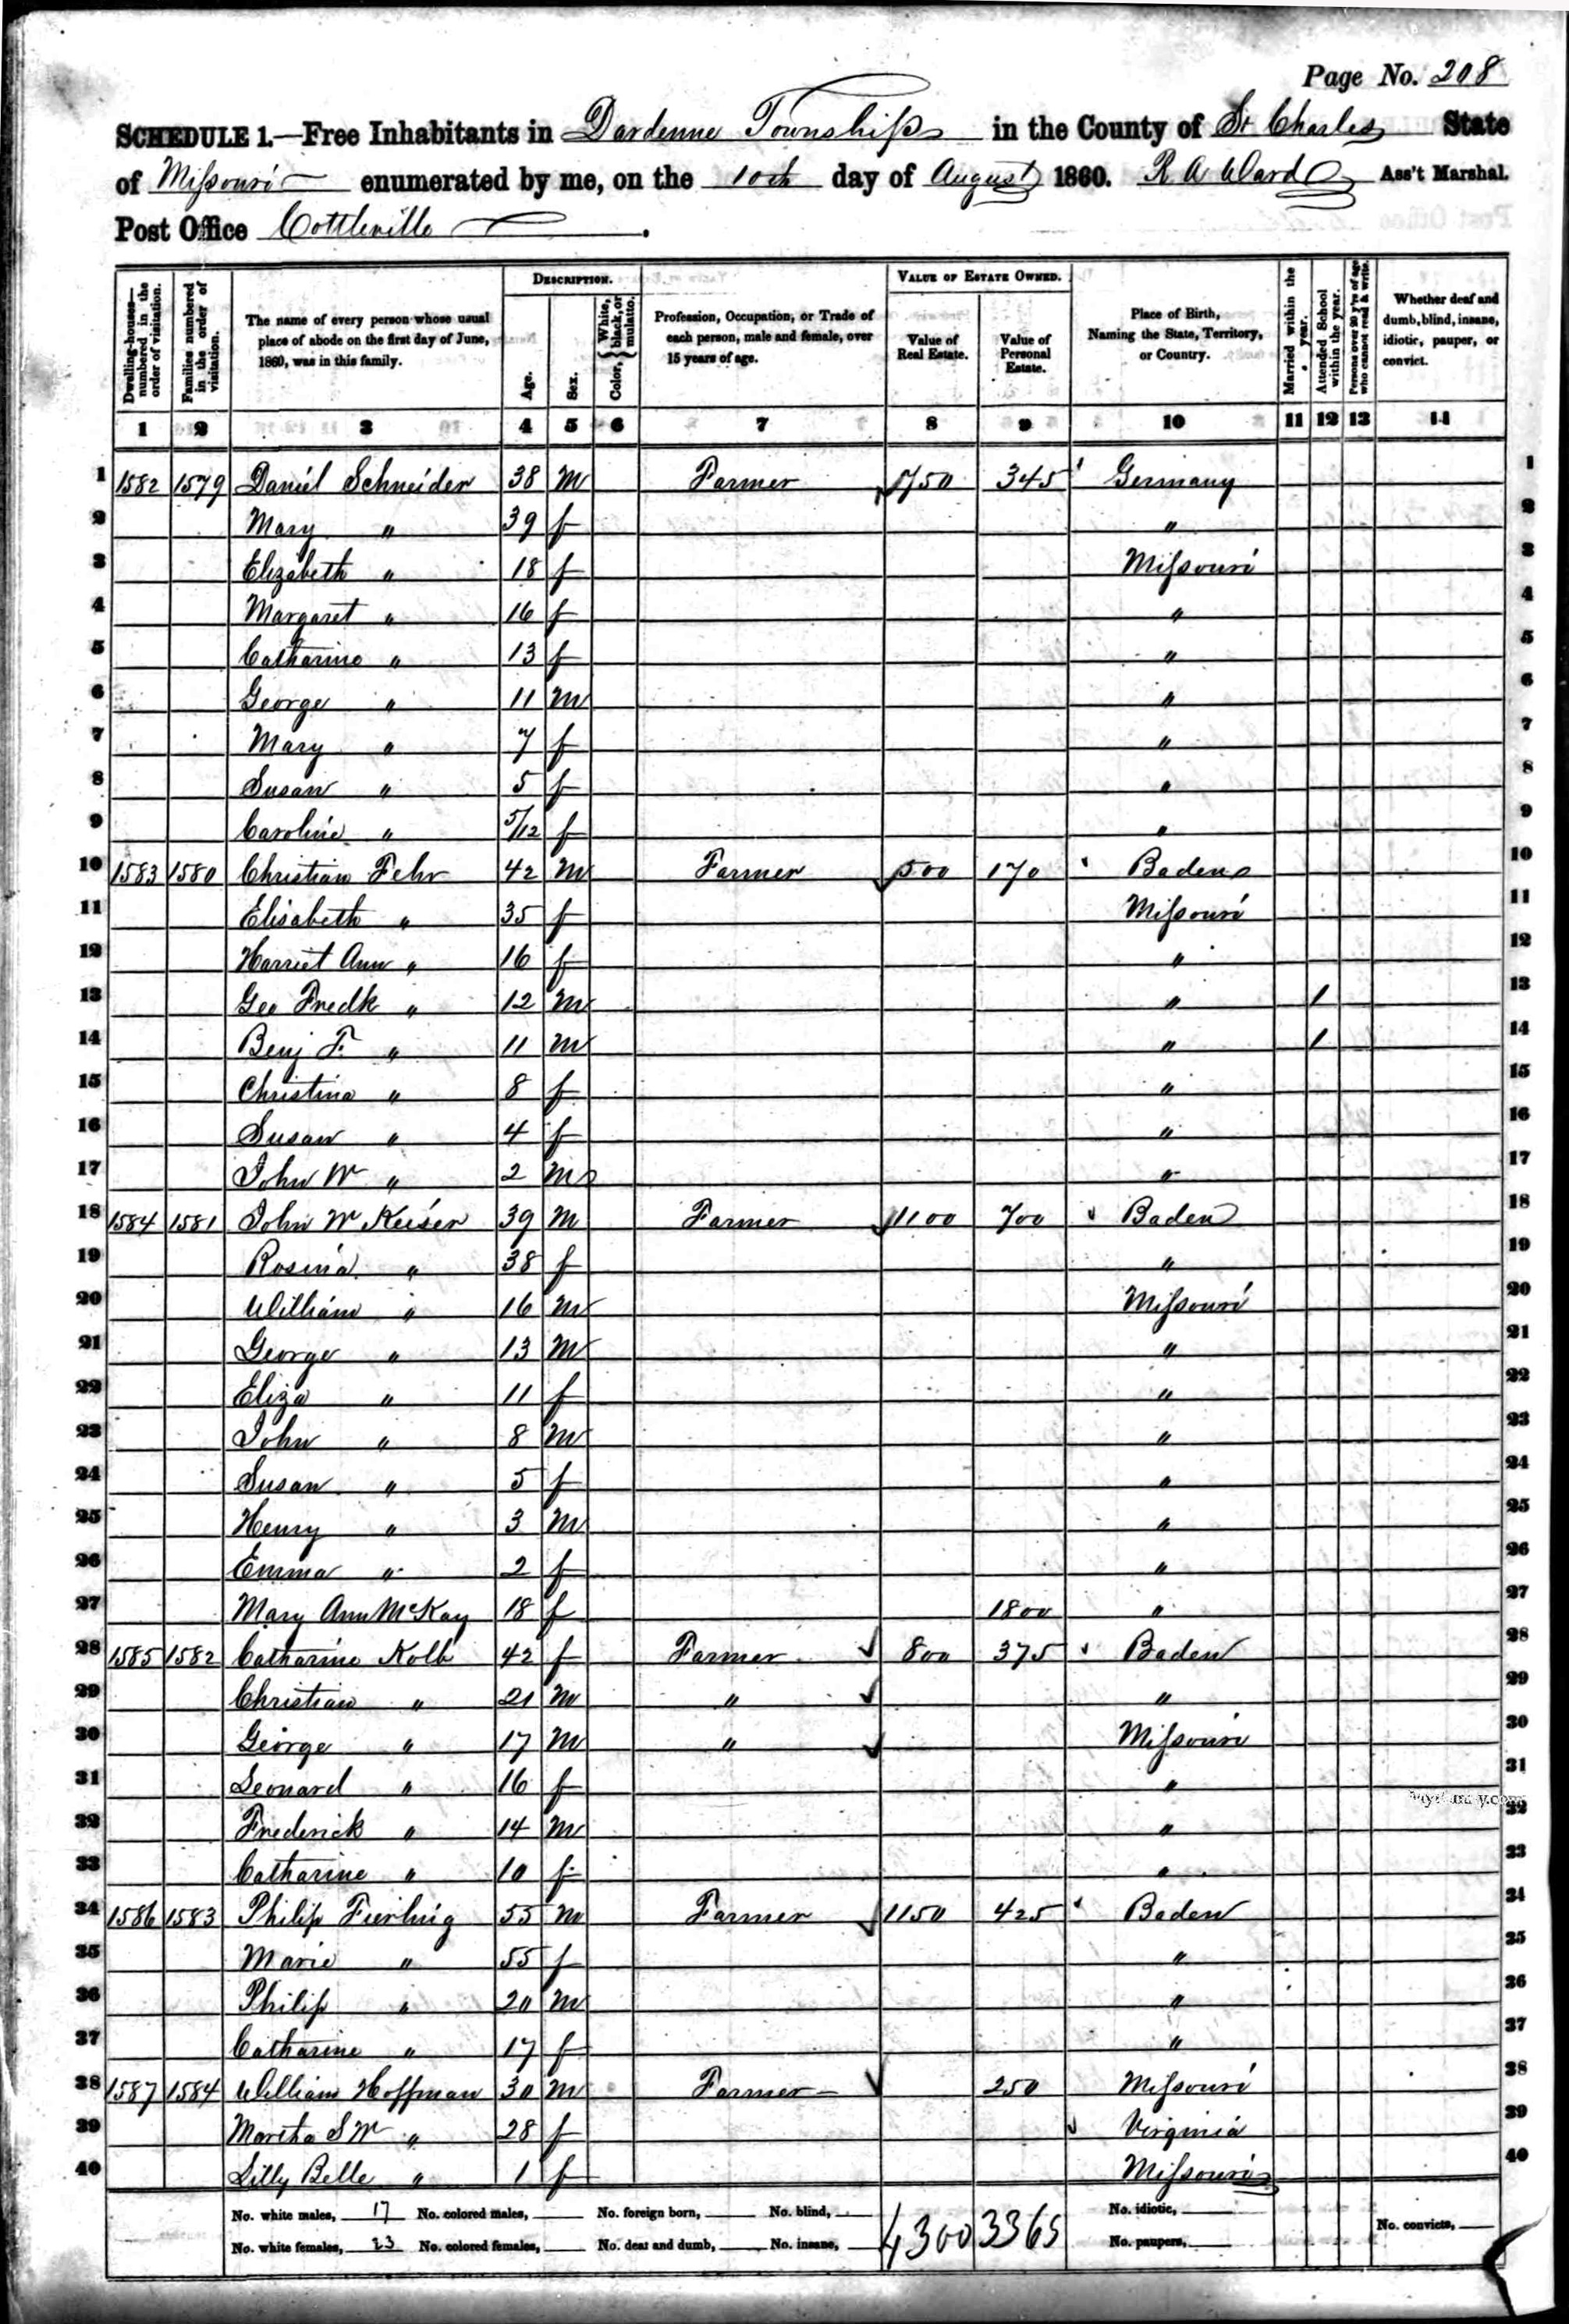 Page No. 208
SCHEDULE 1.—Free Inhabitants in Dardenne Township in the County of St Charles State
of Missouri enumerated by me, on the 10th day of August 1860. R A Ward Ass't Marshal.
Post Office Cottleville.
Dwelling-houses—numbered in the order of visitation. Families numbered in the order of visitation. The name of every person whose usual place of abode on the first day of June, 1860, was in this family. DESCRIPTION. Age. Sex. Color, { White, black, or mulatto. Profession, Occupation, or Trade of each person, male and female, over 15 years of age. VALUE OF ESTATE OWNED. Value of Real Estate. Value of Personal Estate. Place of Birth, Naming the State, Territory, or Country. Married within the year. Attended School within the year. Persons over 20 y'rs of age who cannot read & write. Whether deaf and dumb, blind, insane, idiotic, pauper, or convict.
1 2 3 4 5 6 7 8 9 10 11 12 13 14
1 1582 1579 Daniel Schneider 38 m Farmer 750 345 Germany 1
2 Mary " 39 f " 2
3 Elizabeth " 18 f Missouri 3
4 Margaret " 16 f " 4
5 Catharine " 13 f " 5
6 George " 11 m " 6
7 Mary " 7 f " 7
8 Susan " 5 f " 8
9 Caroline " 5/12 f " 9
10 1583 1580 Christian Fehr 42 m Farmer 500 170 Baden 10
11 Elisabeth " 35 f Missouri 11
12 Harriet Ann " 16 f " 12
13 Geo Fredk " 12 m " 1 13
14 Benj F. " 11 m " 1 14
15 Christina " 8 f " 15
16 Susan " 4 f " 16
17 John W " 2 m " 17
18 1584 1581 John W Keiser 39 m Farmer 1100 700 Baden 18
19 Rosina " 38 f " 19
20 William " 16 m Missouri 20
21 George " 13 m " 21
22 Eliza " 11 f " 22
23 John " 8 m " 23
24 Susan " 5 f " 24
25 Henry " 3 m " 25
26 Emma " 2 f " 26
27 Mary Ann McKay 18 f 1800 " 27
28 1585 1582 Catharine Kolb 42 f Farmer 800 375 Baden 28
29 Christian " 21 m " " 29
30 George " 17 m " Missouri 30
31 Leonard " 16 f " 31
32 Frederick " 14 m " 32
33 Catharine " 10 f " 33
34 1586 1583 Philip Fierling 55 m Farmer 1150 425 Baden 34
35 Marie " 55 f " 35
36 Philip " 20 m " 36
37 Catharine " 17 f " 37
38 1587 1584 William Hoffman 30 m Farmer 250 Missouri 38
39 Martha S W " 28 f Virginia 39
40 Lilly Belle " 1 f Missouri 40
No. white males, 17 No. colored males, No. foreign born, No. blind, 4300 3365 No. idiotic, No. convicts,
No. white females, 23 No. colored females, No. deaf and dumb, No. insane, No. paupers,